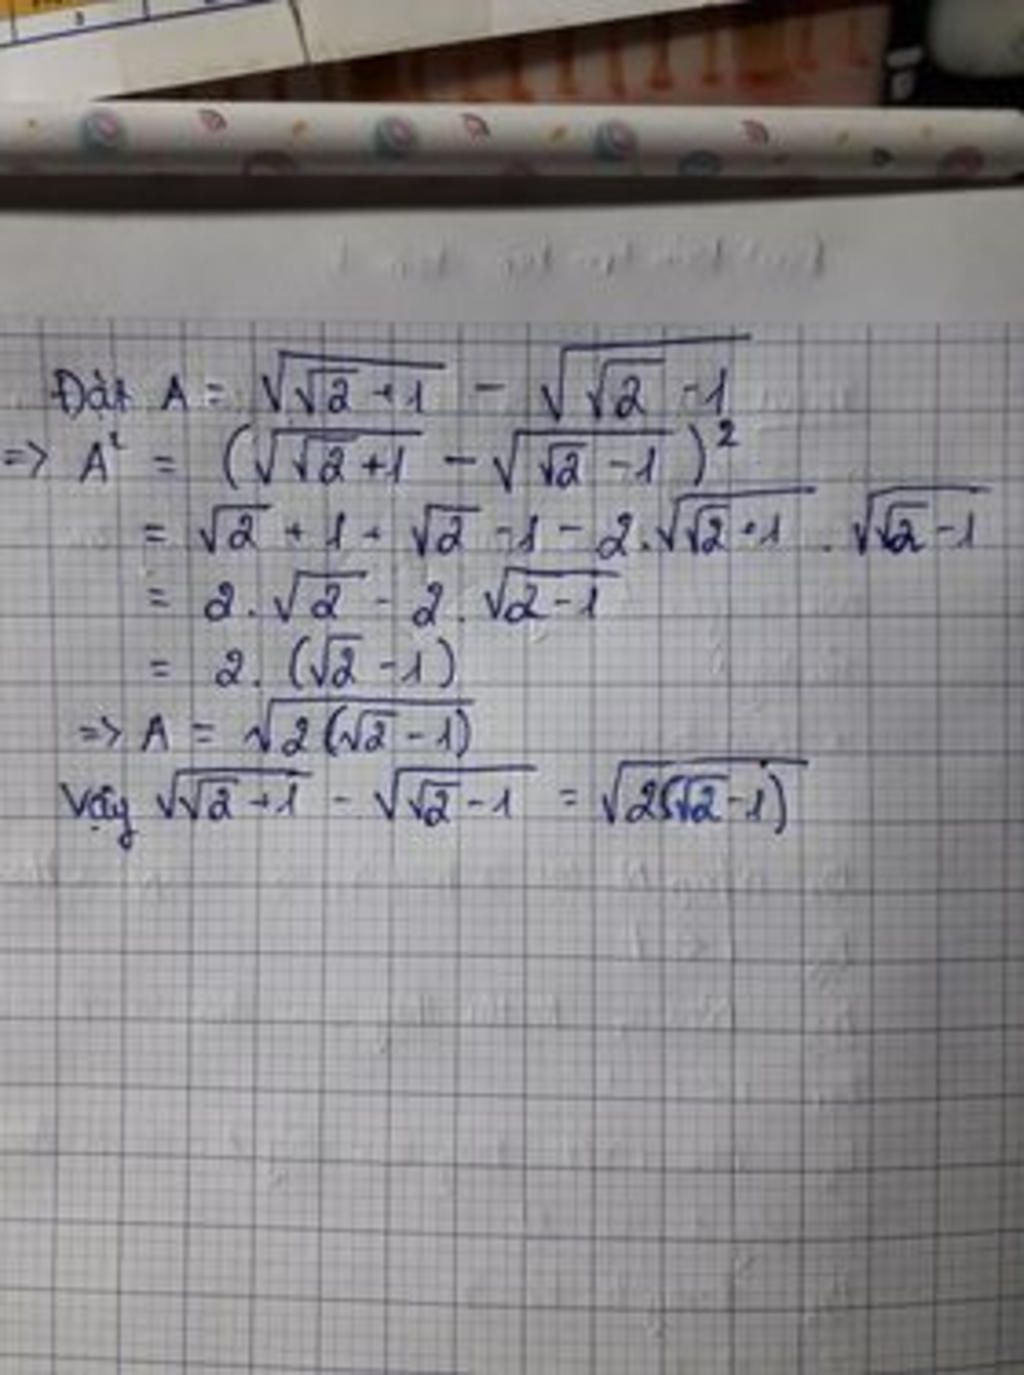 Đặt A = √(√2 + 1) - √(√2 - 1)
=> A² = (√(√2 + 1) - √(√2 - 1))²
= √2 + 1 + √2 - 1 - 2.√(√2 + 1) . √(√2 - 1)
= 2.√2 - 2.√(2 - 1)
= 2.(√2 - 1)
=> A = √(2(√2 - 1))
Vậy √(√2 + 1) - √(√2 - 1) = √(2(√2 - 1))